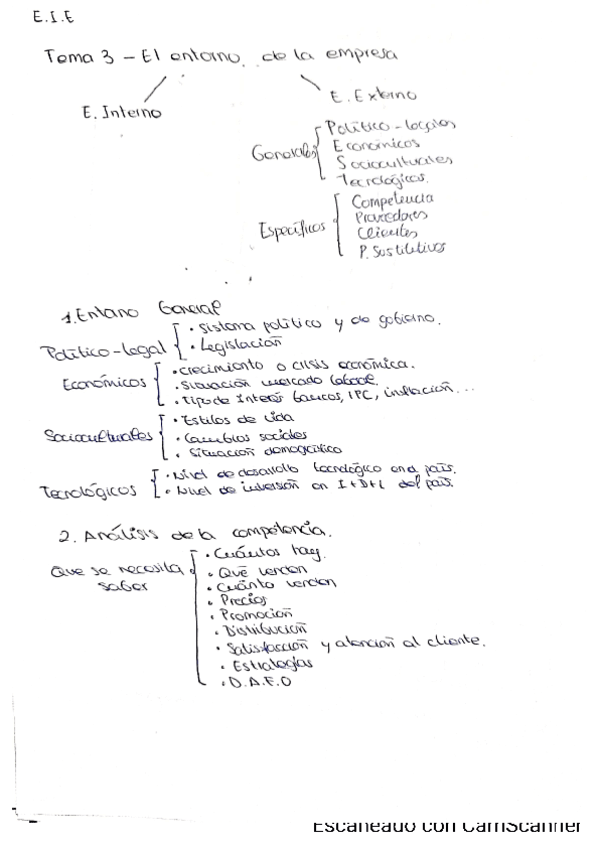 E.I.E
Tema 3 - El entorno de la empresa
E. Interno
E. Externo
Generales
Político-legales
Económicos
Socioculturales
Tecnológicos.
Específicos
Competencia
Proveedores
Clientes
P. Sustitutivos
1. Entorno General
Político-legal
· Sistema político y de gobierno.
· Legislación
Económicos
· crecimiento o crisis económica.
· Situación mercado laboral.
· Tipo de Interés bancos, IPC, inflación...
Socioculturales
· Estilos de vida
· Cambios sociales
· Situación demográfico
Tecnológicos
· Nivel de desarrollo tecnológico en el país.
· Nivel de inversión en I+D+i del país.
2. Análisis de la competencia.
Que se necesita saber
· Cuántos hay.
· Qué venden
· Cuánto venden
· Precios
· Promoción
· Distribución
· Satisfacción y atención al cliente.
· Estrategias
· D.A.F.O
Escaneado con CamScanner